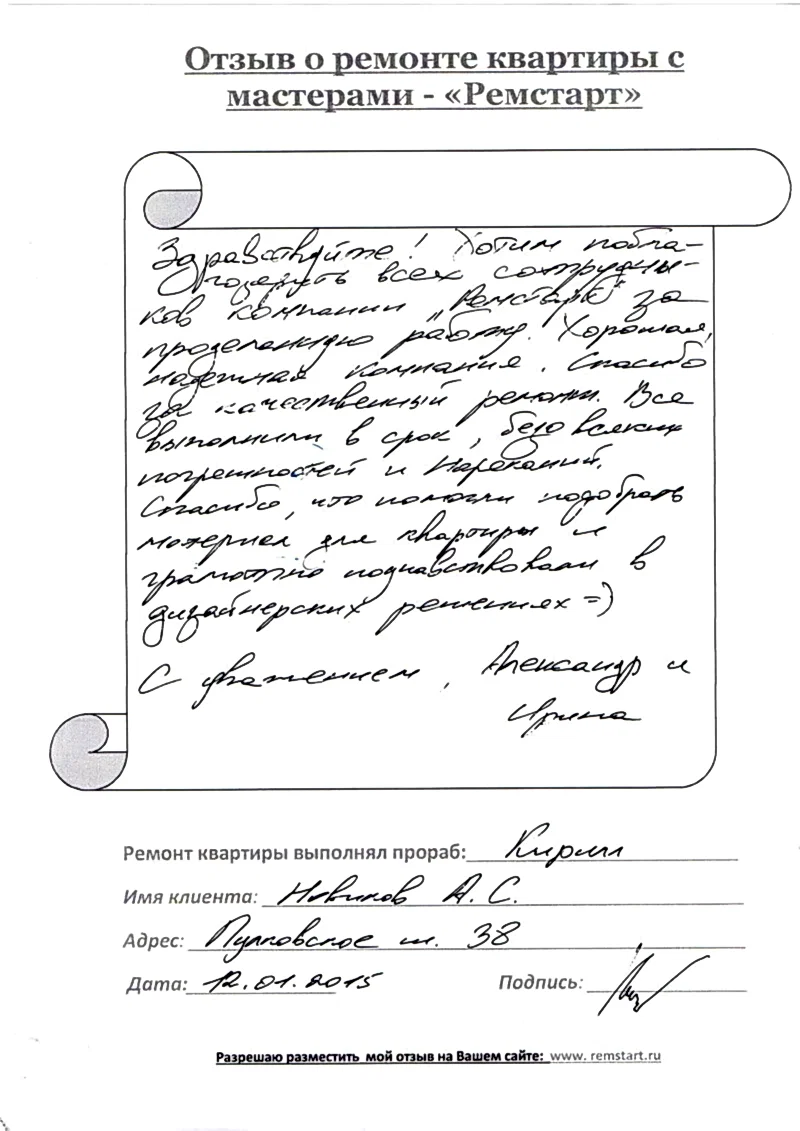 Отзыв о ремонте квартиры с
мастерами - «Ремстарт»
Здравствуйте! Хотим побла-
годарить всех сотрудни-
ков компании „Ремстарт“ за
проделанную работу. Хорошая,
надежная компания. Спасибо
за качественный ремонт. Все
выполнили в срок, безо всяких
погрешностей и нареканий.
Спасибо, что помогли подобрать
материал для квартиры и
грамотно поучавствовали в
дизайнерских решениях =)
С уважением, Александр и
Ирина
Ремонт квартиры выполнял прораб: Кирилл
Имя клиента: Новиков А. С.
Адрес: Пулковское ш. 38
Дата: 12.01.2015 Подпись:
Разрешаю разместить мой отзыв на Вашем сайте: www. remstart.ru